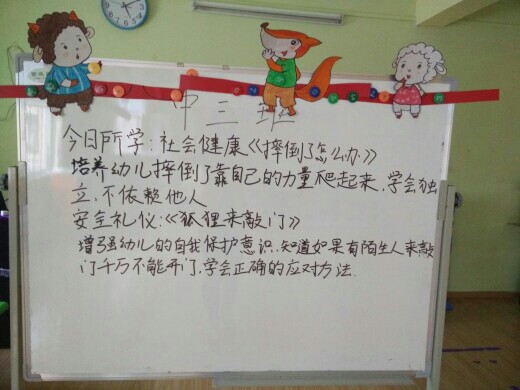 中三班
今日所学:社会健康《摔倒了怎么办》
培养幼儿摔倒了靠自己的力量爬起来,学会独
立,不依赖他人
安全礼仪:《狐狸来敲门》
增强幼儿的自我保护意识.知道如果有陌生人来敲
门千万不能开门,学会正确的应对方法.